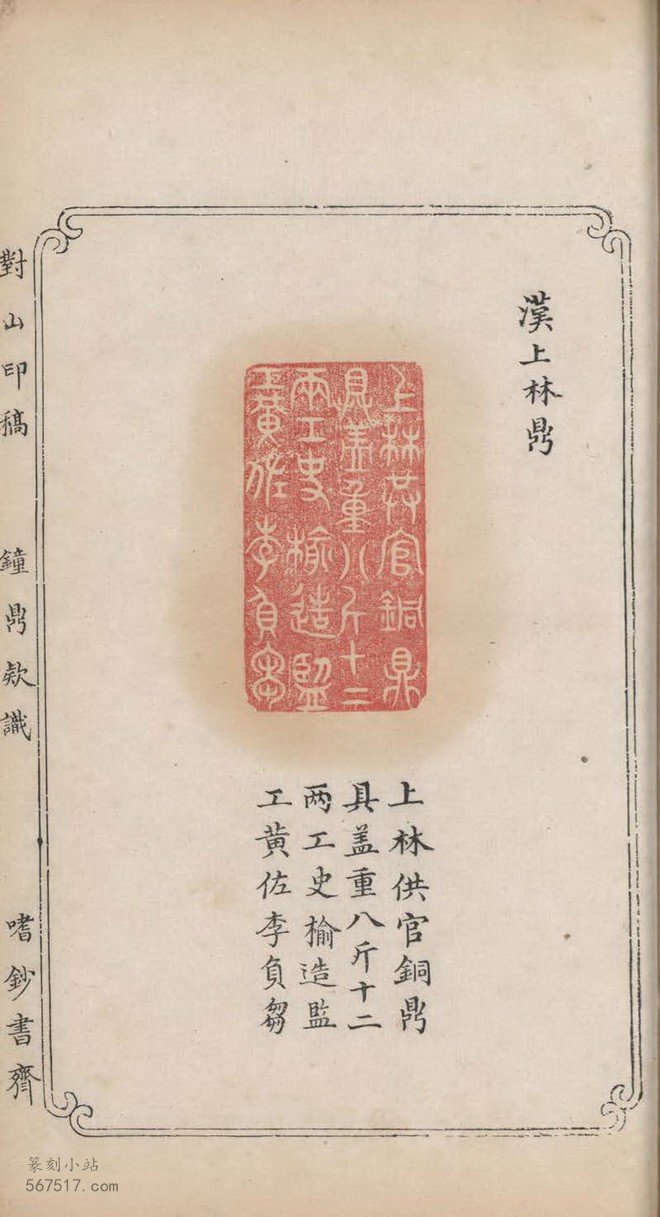 漢上林鼎
上林共官銅鼎
具盖重八斤十二
兩工史榆造監
工黃佐李負芻
上林供官銅鼎
具盖重八斤十二
两工史榆造監
工黄佐李負芻
對山印稿 鐘鼎欵識 嗜鈔書齋
篆刻小站
567517.com